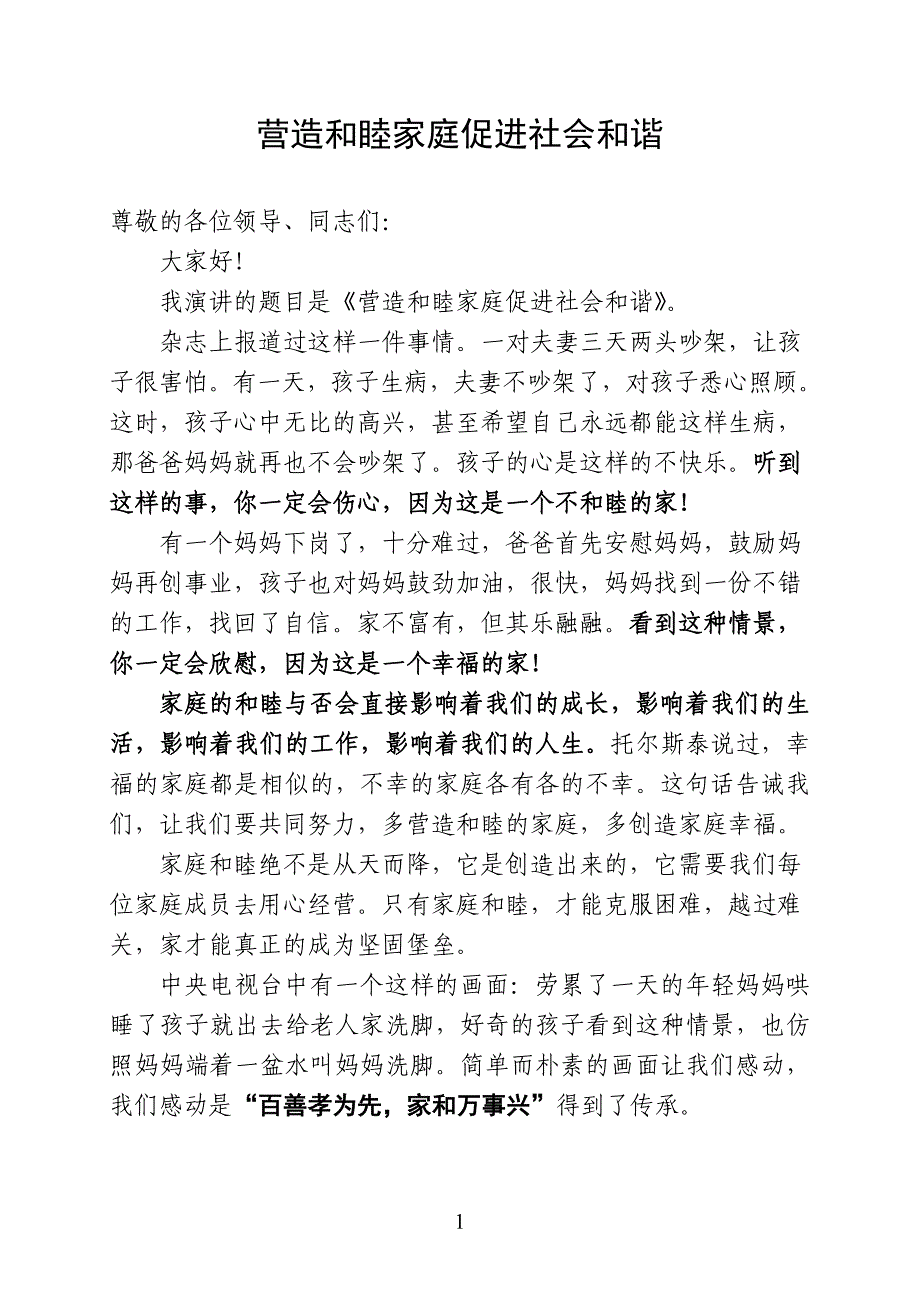 营造和睦家庭促进社会和谐
尊敬的各位领导、同志们：
大家好！
我演讲的题目是《营造和睦家庭促进社会和谐》。
杂志上报道过这样一件事情。一对夫妻三天两头吵架，让孩
子很害怕。有一天，孩子生病，夫妻不吵架了，对孩子悉心照顾。
这时，孩子心中无比的高兴，甚至希望自己永远都能这样生病，
那爸爸妈妈就再也不会吵架了。孩子的心是这样的不快乐。听到
这样的事，你一定会伤心，因为这是一个不和睦的家！
有一个妈妈下岗了，十分难过，爸爸首先安慰妈妈，鼓励妈
妈再创事业，孩子也对妈妈鼓劲加油，很快，妈妈找到一份不错
的工作，找回了自信。家不富有，但其乐融融。看到这种情景，
你一定会欣慰，因为这是一个幸福的家！
家庭的和睦与否会直接影响着我们的成长，影响着我们的生
活，影响着我们的工作，影响着我们的人生。托尔斯泰说过，幸
福的家庭都是相似的，不幸的家庭各有各的不幸。这句话告诫我
们，让我们要共同努力，多营造和睦的家庭，多创造家庭幸福。
家庭和睦绝不是从天而降，它是创造出来的，它需要我们每
位家庭成员去用心经营。只有家庭和睦，才能克服困难，越过难
关，家才能真正的成为坚固堡垒。
中央电视台中有一个这样的画面：劳累了一天的年轻妈妈哄
睡了孩子就出去给老人家洗脚，好奇的孩子看到这种情景，也仿
照妈妈端着一盆水叫妈妈洗脚。简单而朴素的画面让我们感动，
我们感动是“百善孝为先，家和万事兴”得到了传承。
1